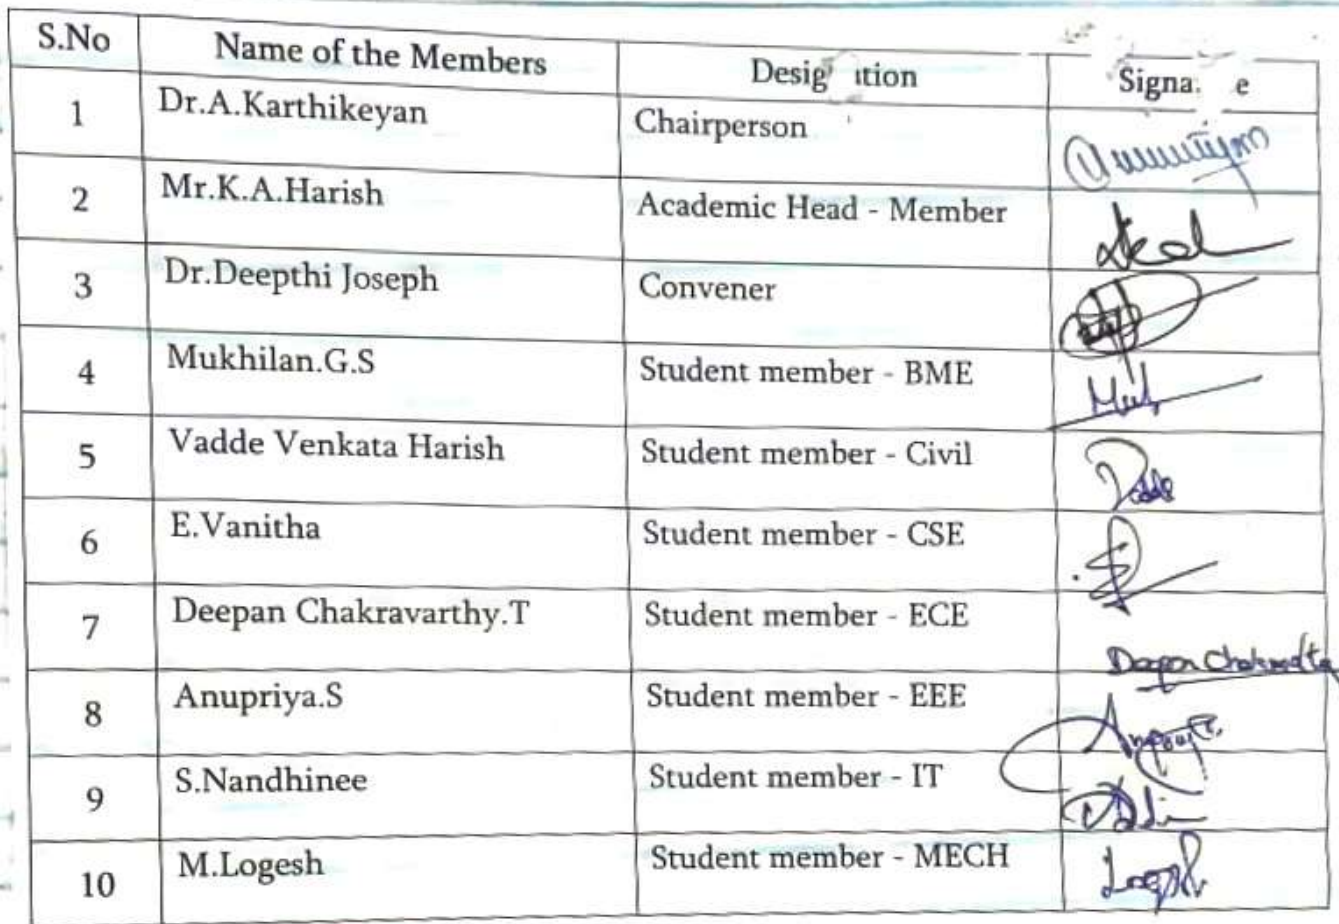 S.No Name of the Members Desig ition Signa. e
1 Dr.A.Karthikeyan Chairperson
2 Mr.K.A.Harish Academic Head - Member
3 Dr.Deepthi Joseph Convener
4 Mukhilan.G.S Student member - BME
5 Vadde Venkata Harish Student member - Civil
6 E.Vanitha Student member - CSE
7 Deepan Chakravarthy.T Student member - ECE
8 Anupriya.S Student member - EEE
9 S.Nandhinee Student member - IT
10 M.Logesh Student member - MECH